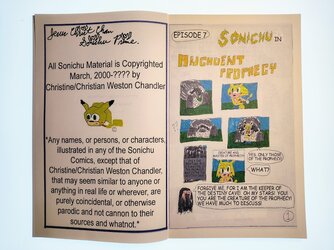 Jesus Christ Chan
Sonichu Prime.
All Sonichu Material is Copyrighted
March, 2000-???? by
Christine/Christian Weston Chandler
*Any names, or persons, or characters,
illustrated in any of the Sonichu
Comics, except that of
Christine/Christian Weston Chandler,
that may seem similar to anyone or
anything in real life or wherever, are
purely coincidental, or otherwise
parodic and not cannon to their
sources and whatnot.*
EPISODE 7
SONICHU IN
ANCHUENT
PROPHECY
YES, ONLY THOSE
OF THE PROPHECY!
WHAT?
FORGIVE ME, FOR I AM THE KEEPER OF
THE DESTINY CAVE! OH MY STARS! YOU
YOU ARE THE CREATURE OF THE PROPHECY!
WE HAVE MUCH TO DISCUSS!
1